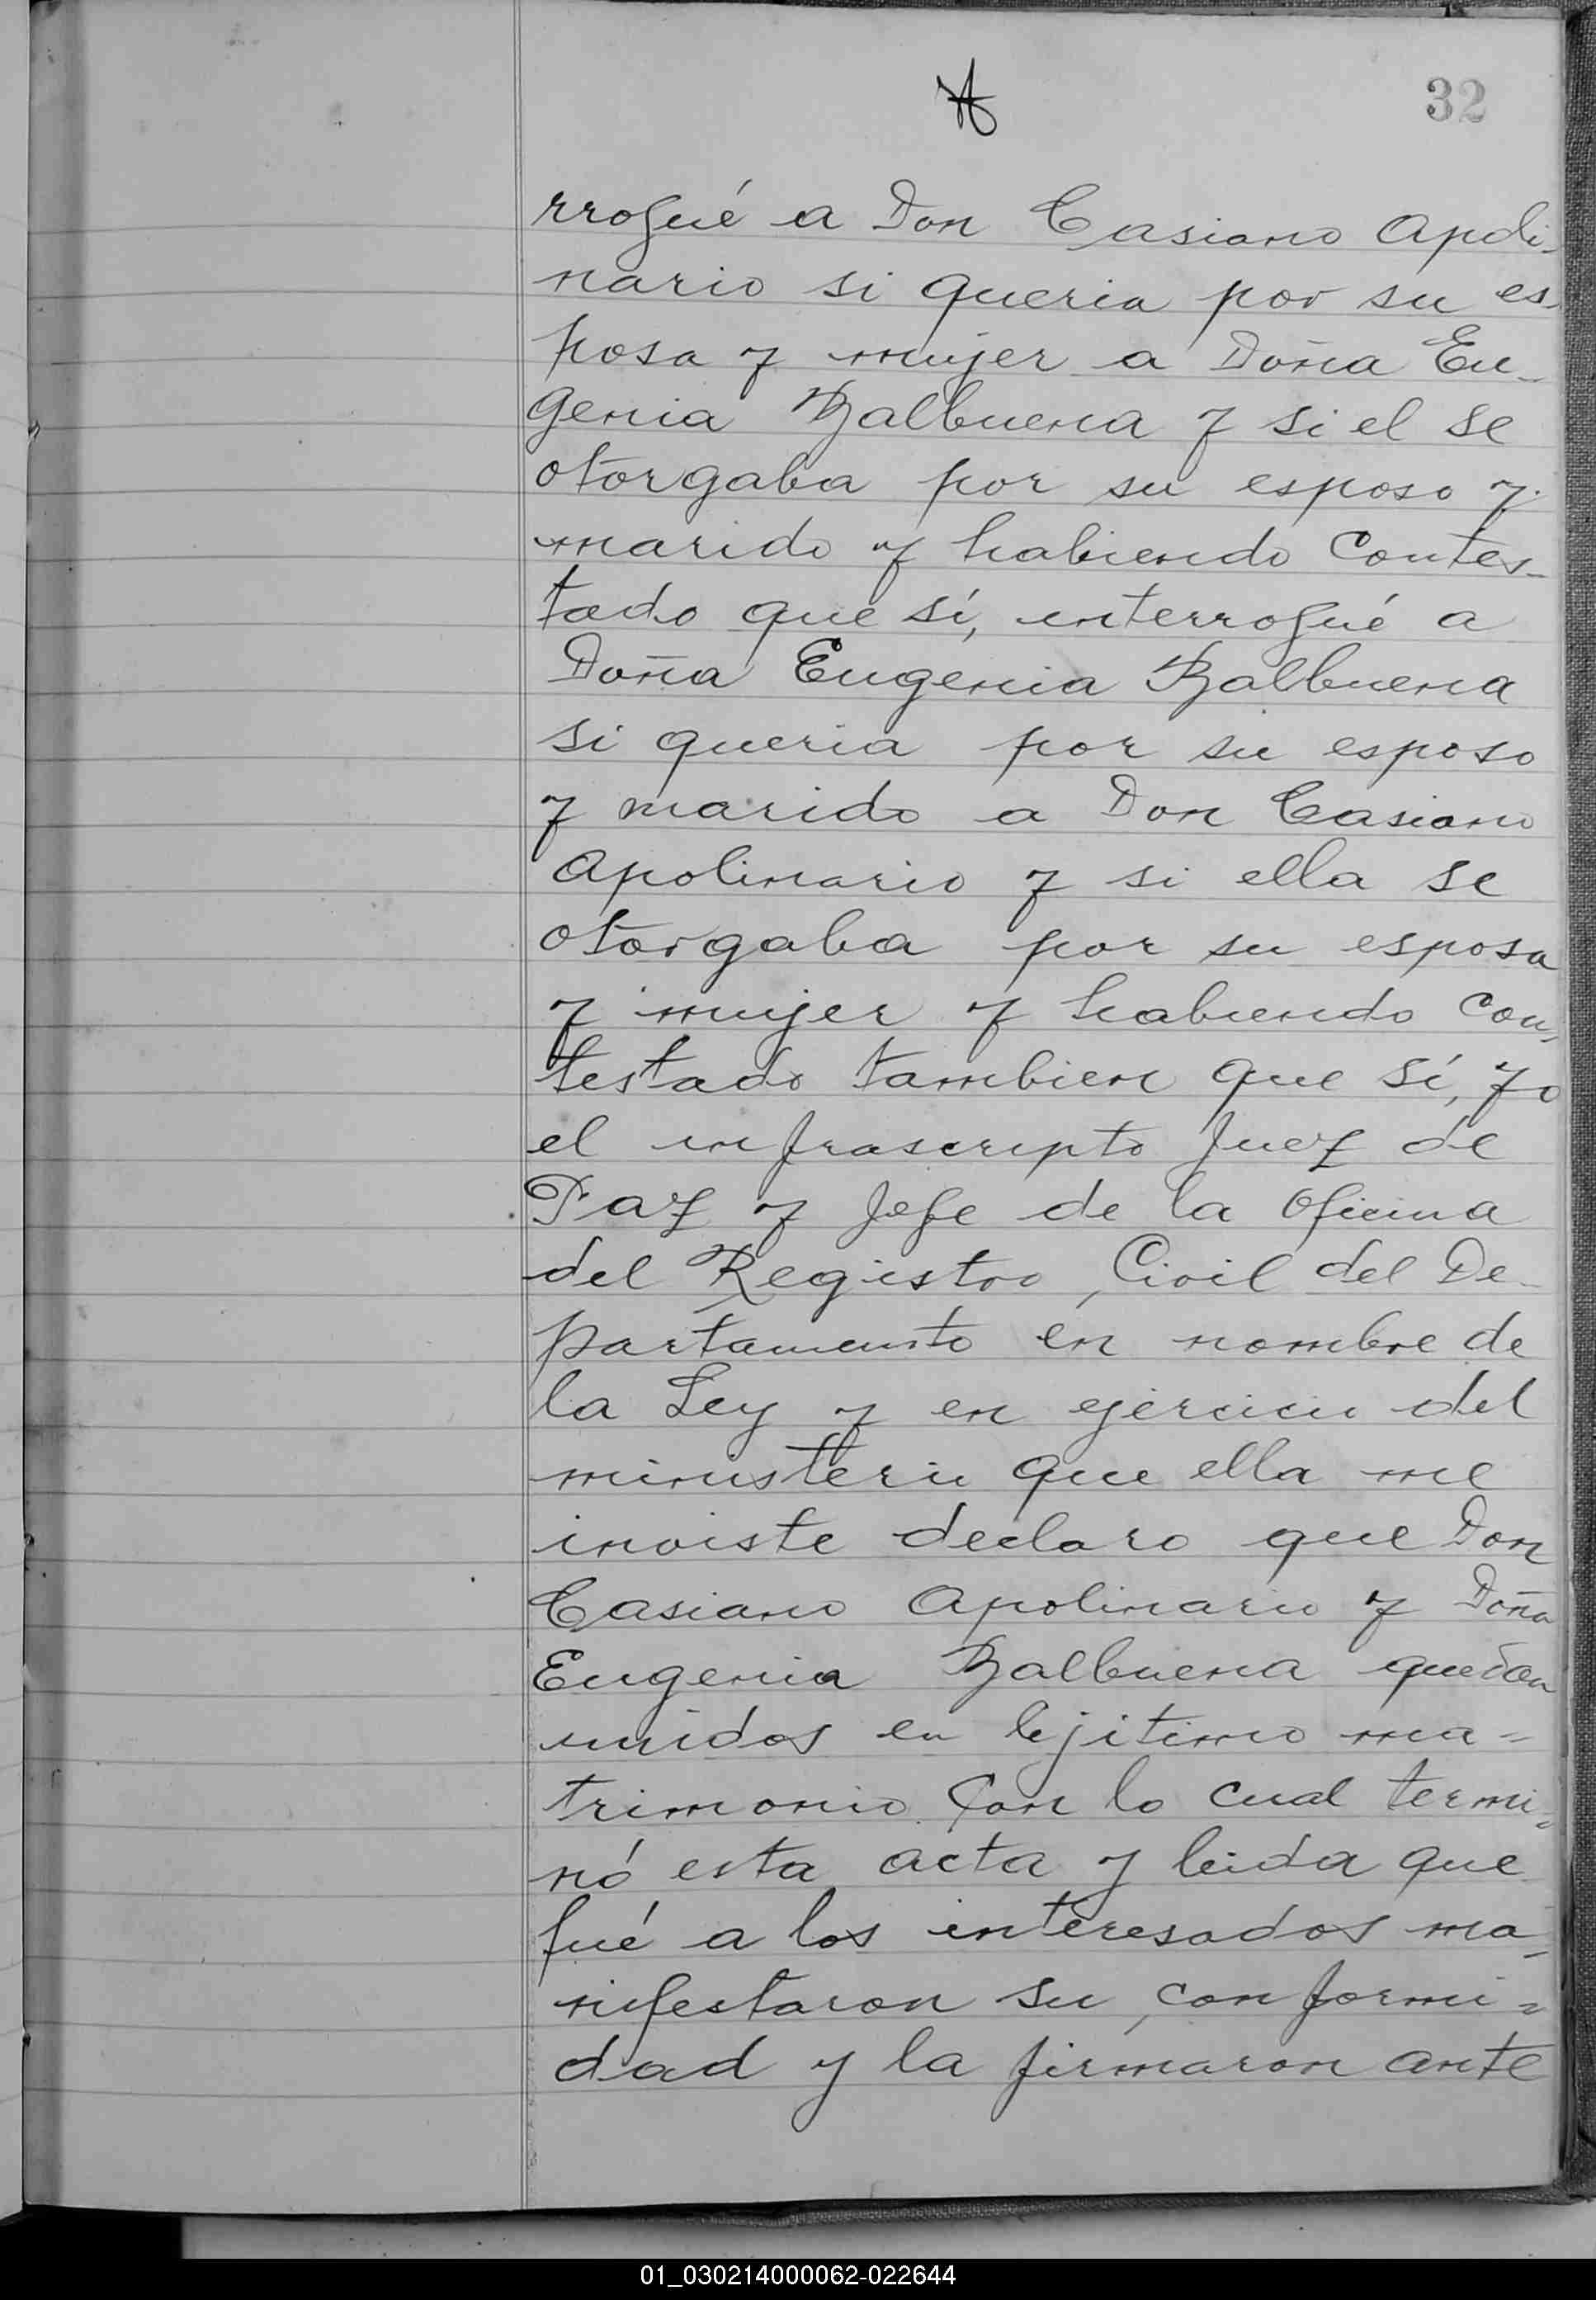 32
rrogué a Don Casiano Apoli-
nario si queria por su es-
posa y mujer a Doña Eu-
genia Balbuena y si el se
otorgaba por su esposo y
marido y habiendo contes-
tado que sí, interrogué a
Doña Eugenia Balbuena
si queria por su esposo
y marido a Don Casiano
Apolinario y si ella se
otorgaba por su esposa
y mujer y habiendo con-
testado tambien que sí, yo
el infrascripto Juez de
Paz y Jefe de la Oficina
del Registro Civil del De-
partamento en nombre de
la Ley y en ejercicio del
ministerio que ella me
inviste declaro que Don
Casiano Apolinario y Doña
Eugenia Balbuena quedan
unidos en lejitimo ma-
trimonio. Con lo cual termi-
nó esta acta y leida que
fué a los interesados ma-
nifestaron su conformi-
dad y la firmaron ante
01_030214000062-022644